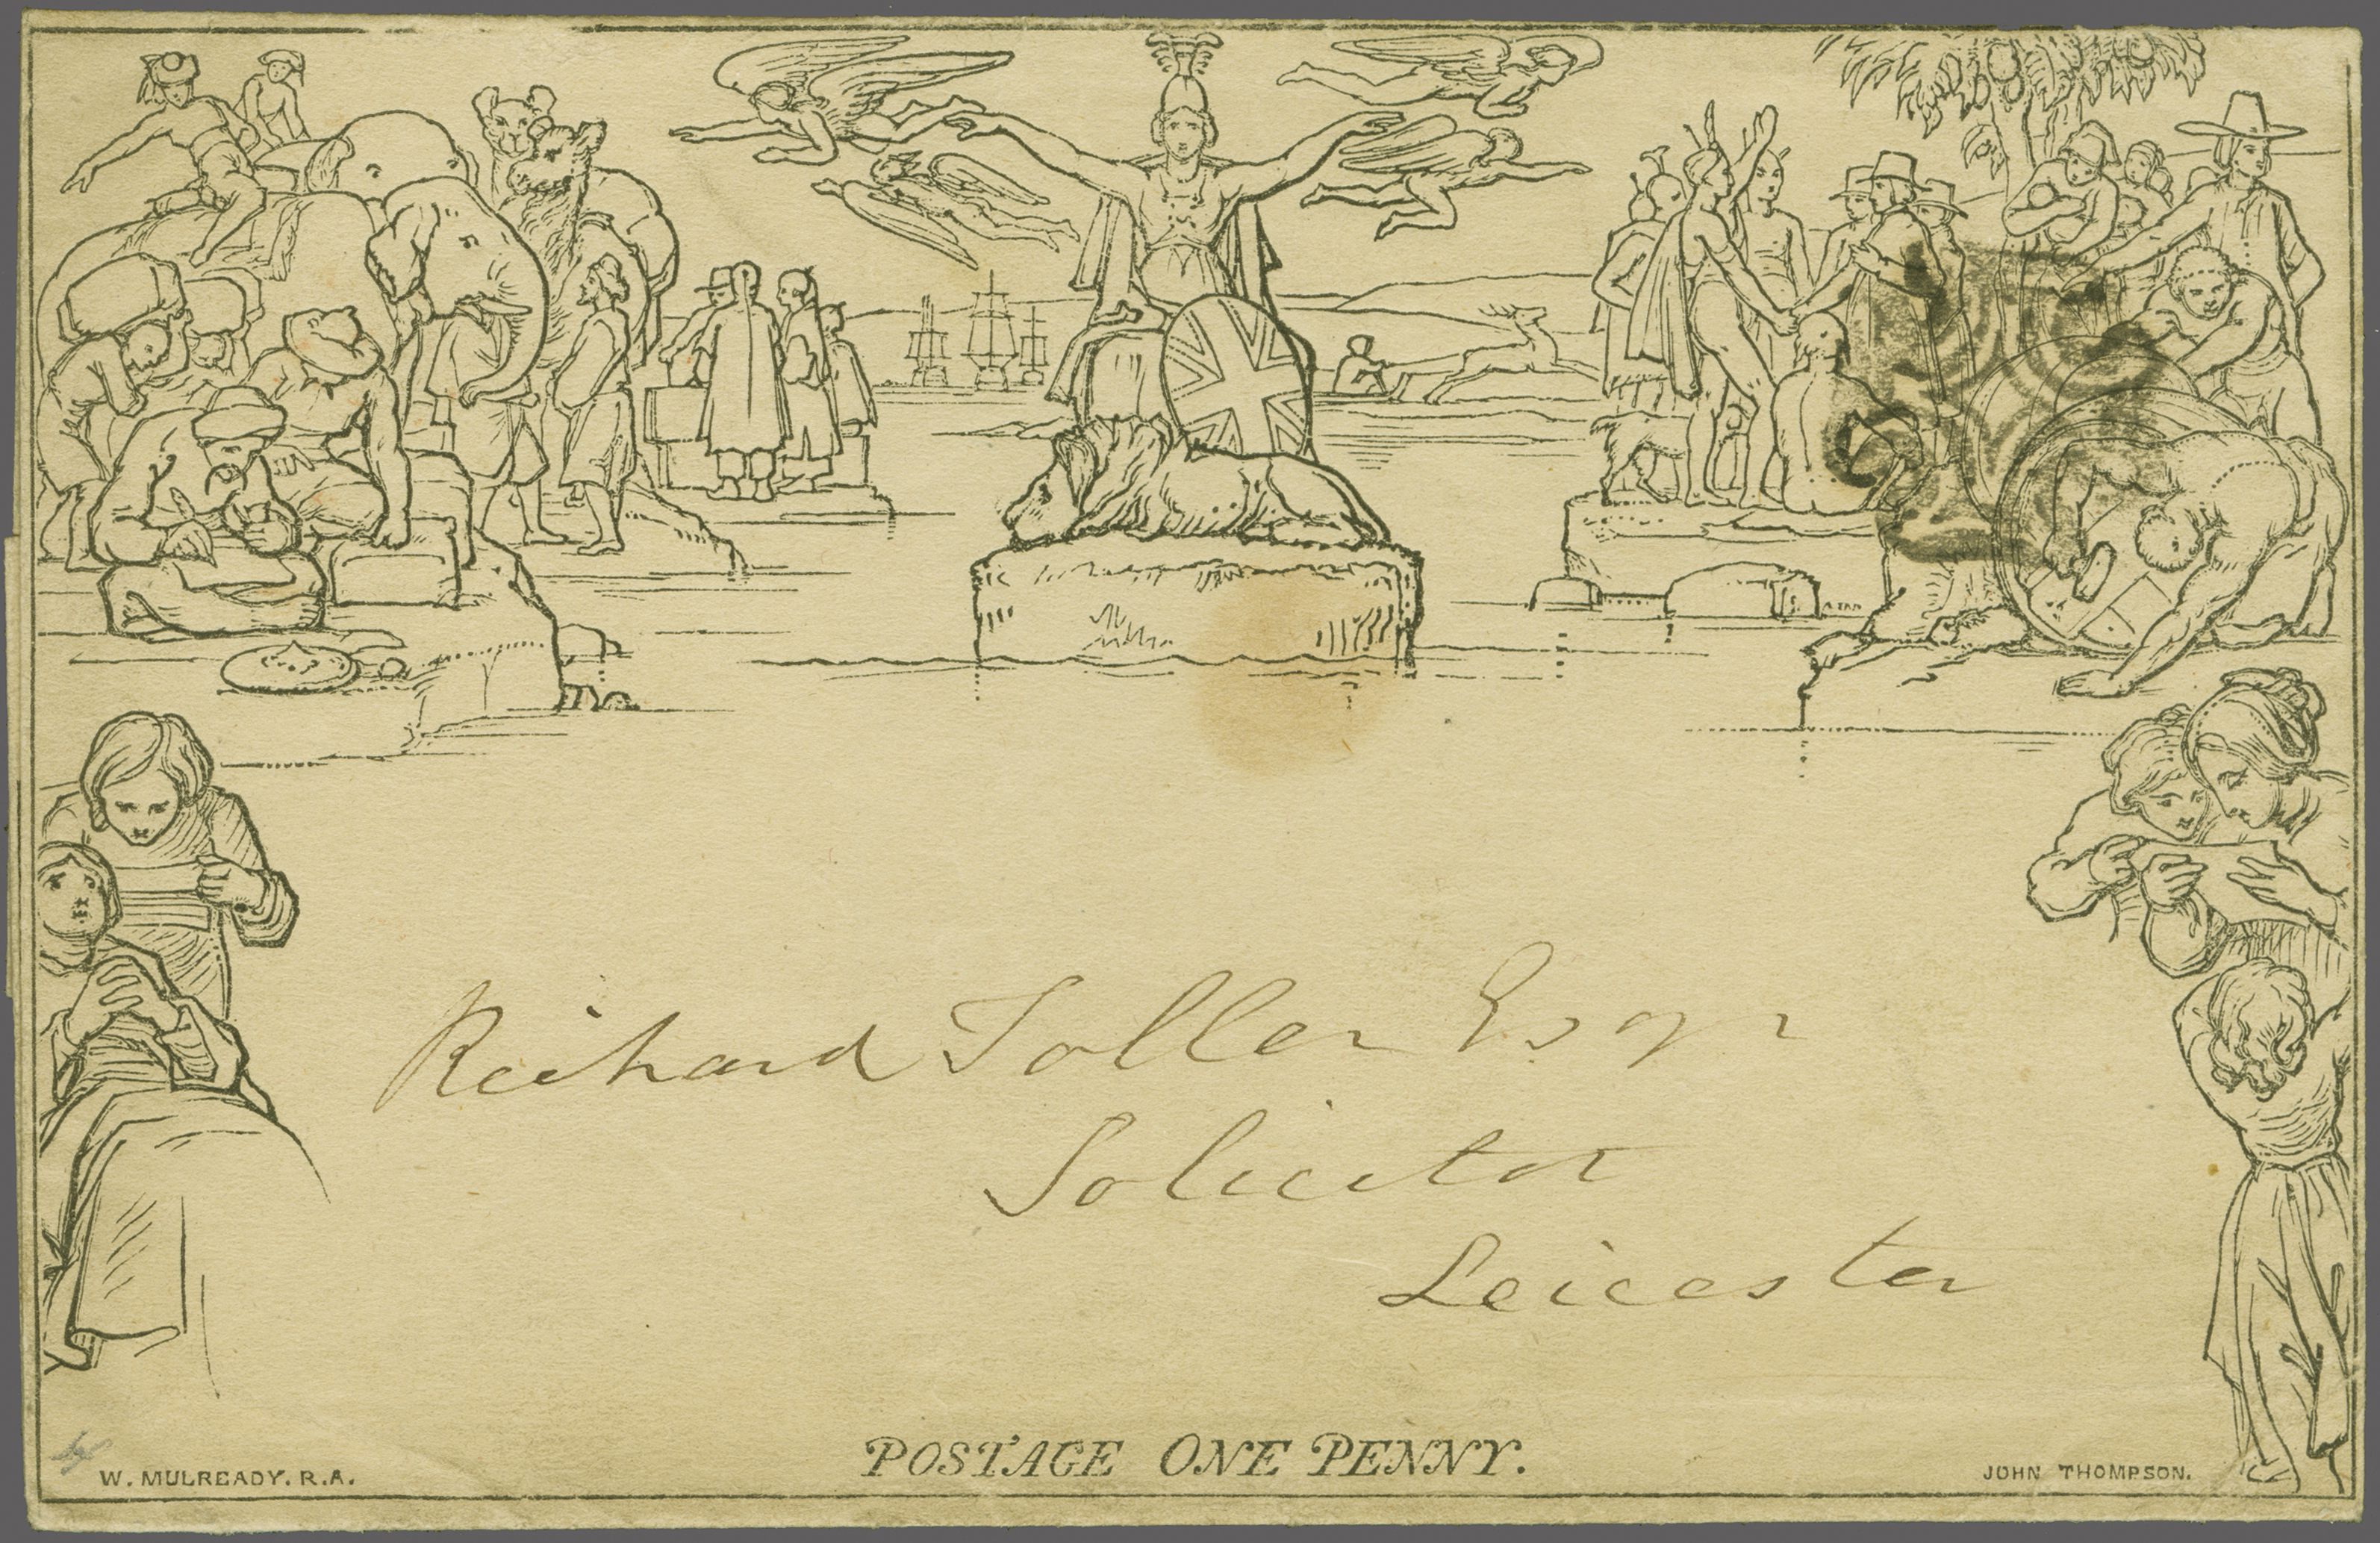 Richard Toller Esqr
Solicitor
Leicester
POSTAGE ONE PENNY.
W. MULREADY. R.A.
JOHN THOMPSON.